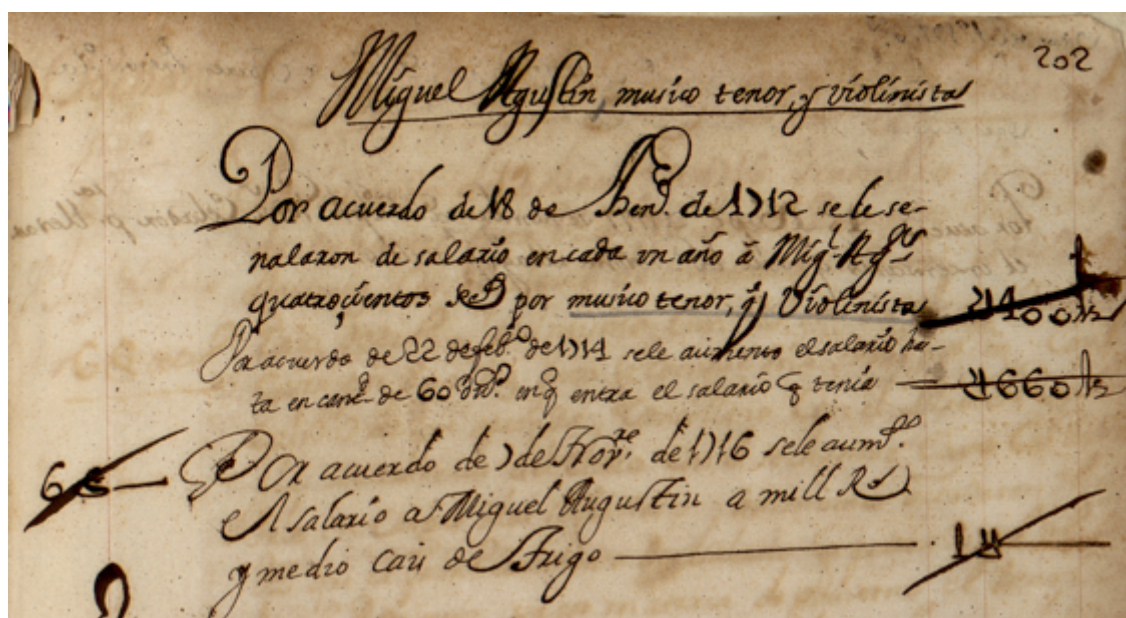 202
Miguel Agustin, musico tenor, y violinista
Por acuerdo de 18 de Hen.º de 1712 se le se-
ñalaron de salario en cada un año á Mig.l Ag.
quatrocientos R.s por musico tenor, y Violinista 400
Por acuerdo de 22 de feb.º de 1714 se le aumento el salario has-
ta en cant.d de 60 en q entra el salario q tenia 660
Por acuerdo de 7 de Nov.re de 1716 se le aum.to
el salario a Miguel Augustin a mill R.s
y medio caiz de Trigo